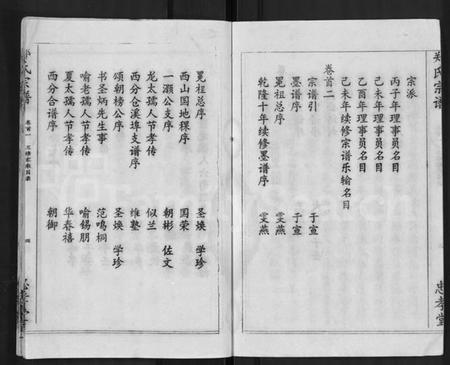 郑氏宗谱
宗派
丙子年理事员名目
己未年理事员名目
乙酉年理事员名目
己未年续修宗谱乐输名目
卷首二
宗谱引 于宣
墨谱序 于宣
冕祖序 雯燕
乾隆十年续修墨谱序 雯燕
忠孝堂
冕祖总序 圣焕 学珍
西山国地稞序 国荣
一灏公支序 朝彬 佐文
龙太孺人节孝传 似兰
西分仓溪埠支谱序 维塾
颂朝榜公序 圣焕 学珍
书圣炳先生事 范鸣桐
喻老孺人节孝传 喻锡朋
夏太孺人节孝传 华春禧
西分合谱序 朝御
氏宗谱
卷首一